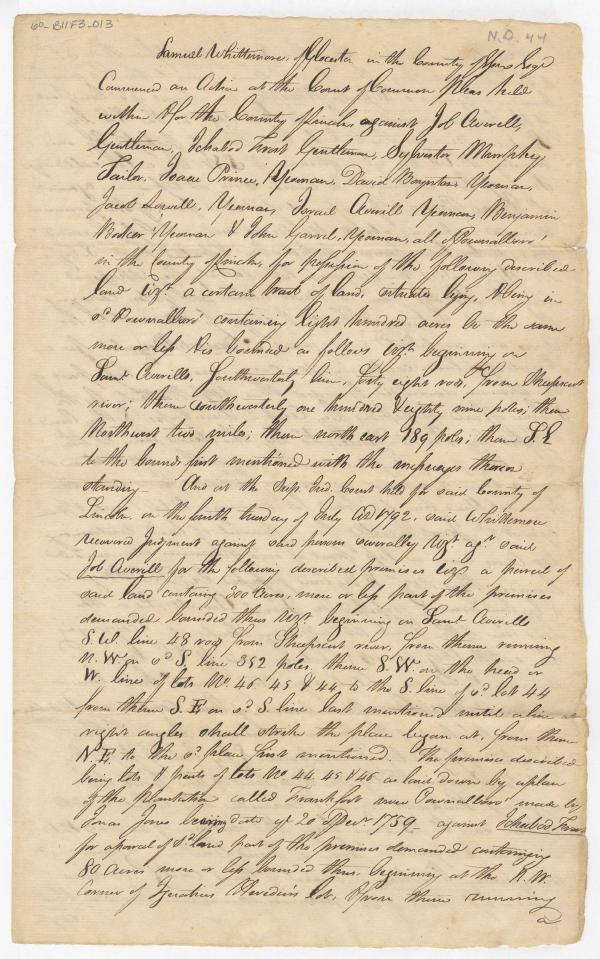 60-B11F3-013
N.D. 44
Samuel Whittemore, of Glocester in the County of Essex Esqr
Commenced an Action at the Court of Common Pleas held
within & for the County of Lincoln, against Job Averell,
Gentleman, Ichabod Frost Gentleman, Sylvester Murphey
Tailor, Isaac Prince, Yeoman, David Boynton Yeoman,
Jacob Lowell, Yeoman, Israel Averill Yeoman, Benjamin
Yeoman & John Yeoman, all of Pownalboro'
in the County of Lincoln, for possession of the following described
land Vizt. a certain tract of land, situate lying, & being in
sd Pownalboro' containing Eight hundred acres be the same
more or less & is bounded as follows Vizt. beginning on
Saml Averills, Southwesterly line, forty eight rods, from Sheepscut
river; thence southwesterly one hundred & eighty nine poles; thence
Northwest two miles; thence north east 189 poles; thence S.E
to the bounds first mentioned with the messuages thereon
standing— And at the Sup. Jud. Court held for said County of
Lincoln on the fourth tuesday of July AD 1792, said Whittemore
recovered Judgment against said persons severally Vizt agt said
Job Averill for the following described premises Viz. a parcel of
said land containg 200 Acres, more or less part of the premises
demanded bounded thus Vizt beginning on Saml Averills
S.W. line 48 rods from Sheepscut river, from thence running
N.W on sd S. line 352 poles, thence S.W. on the head or
W. line of lots No 46. 45 & 44 to the S. line of sd lot 44
from thence S E on sd S. line last mentioned until a line at
right angles shall strike the place began at, from thence
N.E. to the sd place first mentioned. The premises described
being lots & parts of lots No. 44. 45 & 46 as laid down by a plan
of the Plantation called Frankfort now Pownallboro' made by
Jonas Jones bearing date ye 20 of Decr 1759— against Ichabod Frost
for a parcel of sd land part of the premises demanded containing
80 Acres more or less bounded thus, beginning at the N.W.
corner of lot, & from thence running
a